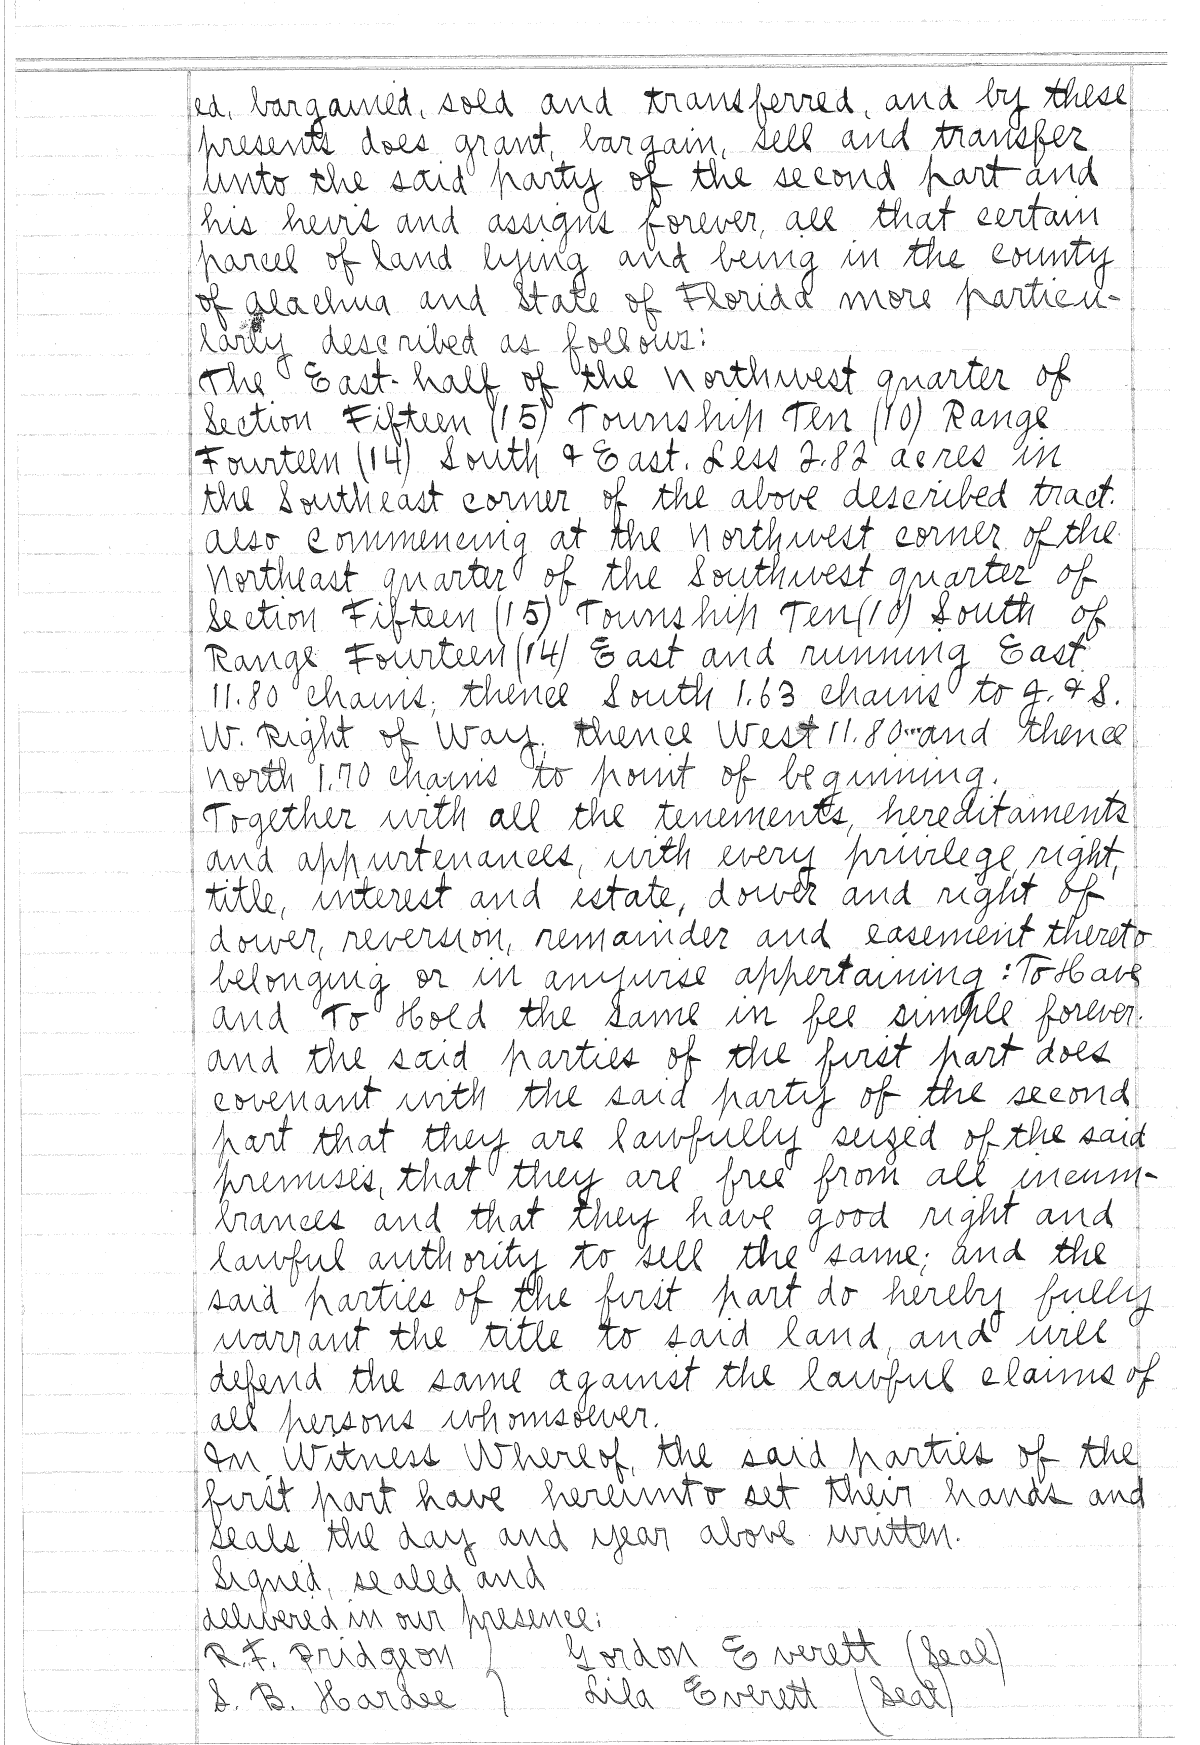 ed, bargained, sold and transferred, and by these
presents does grant, bargain, sell and transfer
unto the said party of the second part and
his heirs and assigns forever, all that certain
parcel of land lying and being in the county
of Alachua and State of Florida more particu-
larly described as follows:
The East-half of the Northwest quarter of
Section Fifteen (15) Township Ten (10) Range
Fourteen (14) South & East. Less 2.82 acres in
the Southeast corner of the above described tract.
also commencing at the Northwest corner of the
Northeast quarter of the Southwest quarter of
Section Fifteen (15) Township Ten (10) South of
Range Fourteen (14) East and running East
11.80 chains, thence South 1.63 chains to J. & S.
W. Right of Way, thence West 11.80 and thence
North 1.70 chains to point of beginning.
Together with all the tenements, hereditaments
and appurtenances, with every privilege, right,
title, interest and estate, dower and right of
dower, reversion, remainder and easement thereto
belonging or in anywise appertaining: To Have
and To Hold the same in fee simple forever.
and the said parties of the first part does
covenant with the said party of the second
part that they are lawfully seized of the said
premises, that they are free from all incum-
brances and that they have good right and
lawful authority to sell the same; and the
said parties of the first part do hereby fully
warrant the title to said land, and will
defend the same against the lawful claims of
all persons whomsoever.
In Witness Whereof, the said parties of the
first part have hereunto set their hands and
seals the day and year above written.
Signed, sealed and
delivered in our presence:
R. F. Pridgeon ) Gordon Everett (Seal)
S. B. Hardee ) Lila Everett (Seal)